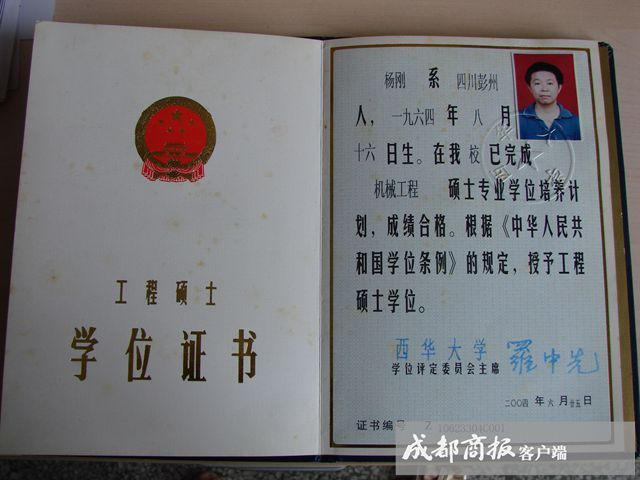 工程硕士
学位证书
杨刚 系 四川彭州
人，一九六四 年 八 月
十六 日生。在我 校 已完成
机械工程 硕士专业学位培养计
划，成绩合格。根据《中华人民共
和国学位条例》的规定，授予工程
硕士学位。
西华大学
学位评定委员会主席 羅中先
二00四 年 六 月 廿五 日
证书编号 Z 10623304C001
成都商报客户端